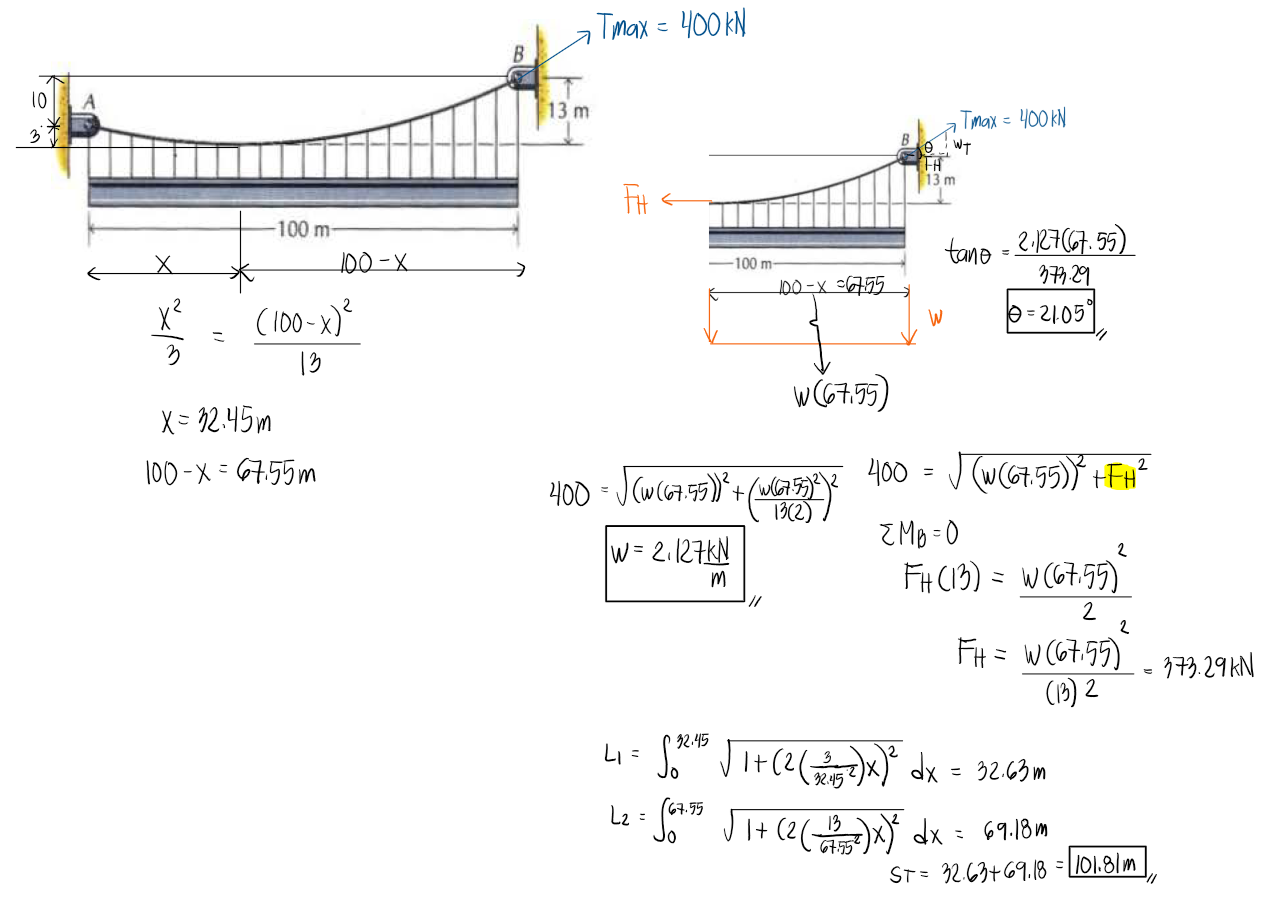 Tmax = 400 kN
B
10
A
3
13 m
100 m
x
100 - x
x²/3 = (100-x)²/13
x = 32.45m
100 - x = 67.55m
Tmax = 400 kN
B
θ
WT
FH
13 m
FH
100 m
100 - x = 67.55
W
W(67.55)
tanθ = 2.127(67.55)/373.29
θ = 21.05°
400 = √((W(67.55))² + (W(67.55)²/13(2))²)
W = 2.127 kN/m
400 = √((W(67.55))² + FH²)
ΣMB = 0
FH(13) = W(67.55)²/2
FH = W(67.55)²/(13)2 = 373.29 kN
L1 = ∫₀^32.45 √(1+(2(3/32.45²)x)²) dx = 32.63m
L2 = ∫₀^67.55 √(1+(2(13/67.55²)x)²) dx = 69.18m
ST = 32.63+69.18 = 101.81m